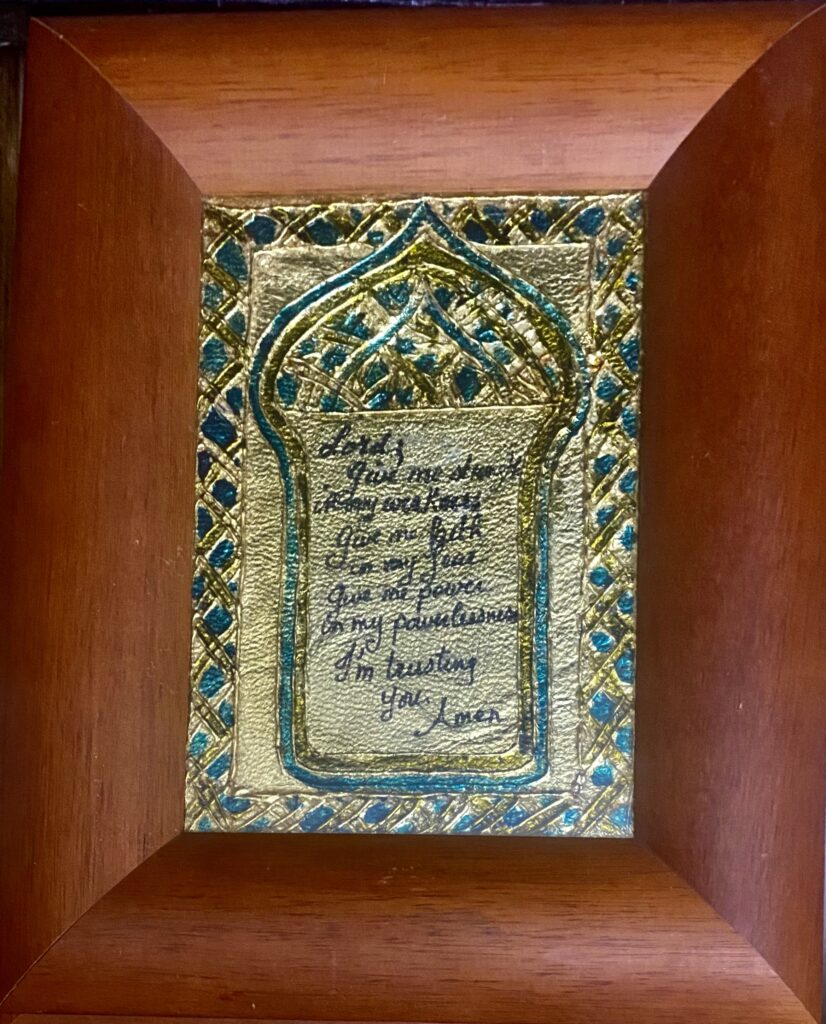 Lord,
Give me strength
in my weakness
Give me faith
in my fear
Give me power
in my powerlessness
I'm trusting
you.
Amen